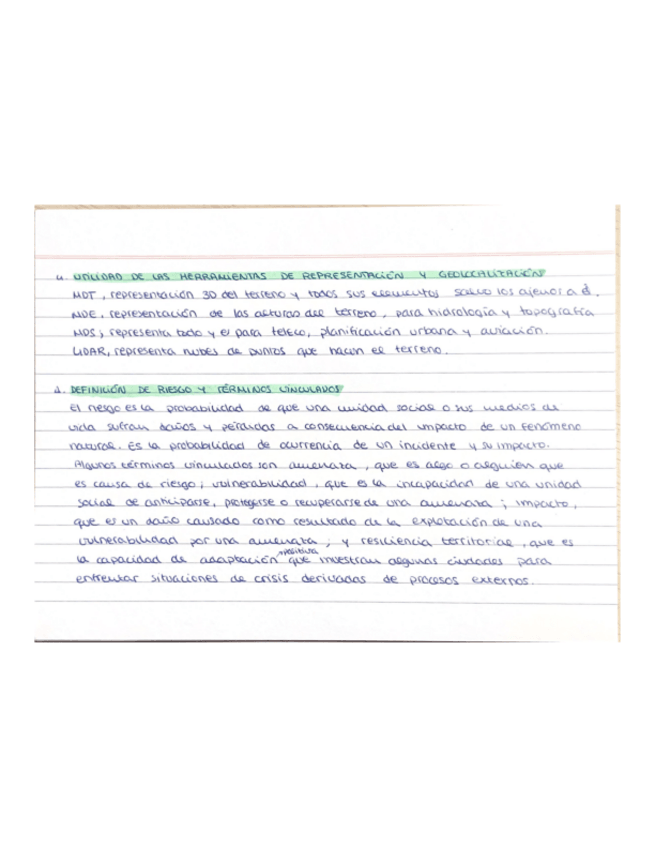 4. UTILIDAD DE LAS HERRAMIENTAS DE REPRESENTACIÓN Y GEOLOCALIZACIÓN
MDT, representación 3D del terreno y todos sus elementos salvo los ajenos a él.
MDE, representación de las alturas del terreno, para hidrología y topografía
MDS, representa todo y es para teleco, planificación urbana y aviación.
LIDAR, representa nubes de puntos que hacen el terreno.
1. DEFINICIÓN DE RIESGO Y TÉRMINOS VINCULADOS
El riesgo es la probabilidad de que una unidad social o sus medios de
vida sufran daños y pérdidas a consecuencia del impacto de un fenómeno
natural. Es la probabilidad de ocurrencia de un incidente y su impacto.
Algunos términos vinculados son amenaza, que es algo o alguien que
es causa de riesgo; vulnerabilidad, que es la incapacidad de una unidad
social de anticiparse, protegerse o recuperarse de una amenaza; impacto,
que es un daño causado como resultado de la explotación de una
vulnerabilidad por una amenaza; y resiliencia territorial, que es
la capacidad de adaptación positiva que muestran algunas ciudades para
enfrentar situaciones de crisis derivadas de procesos externos.